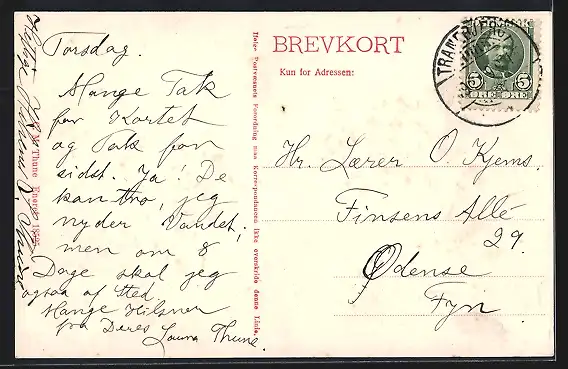 Torsdag.
Mange Tak
for Kortet
og Tak for
sidst. Ja! De
kan tro, jeg
nyder Vandet,
men om 8
Dage skal jeg
ogsaa af sted
Mange Hilsner
fra Deres Laura Thune.
Thune Eneret
Ifølge Postvæsenets Forordning maa Korrespondancen ikke overskride denne Linie.
BREVKORT
Kun for Adressen:
5 5
Hr. Lærer O. Kjems.
Finsens Allé
29.
Odense
Fyn